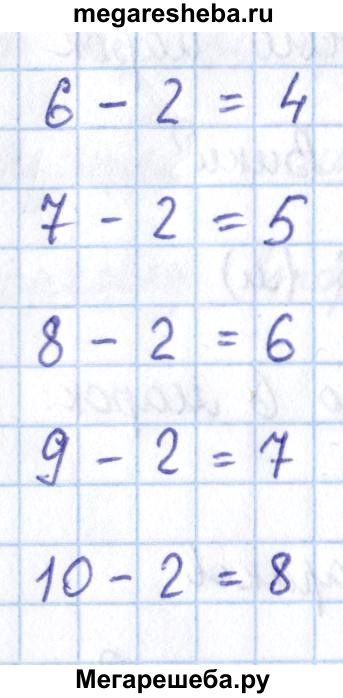 megaresheba.ru
6 - 2 = 4
7 - 2 = 5
8 - 2 = 6
9 - 2 = 7
10 - 2 = 8
Мегарешеба.ру